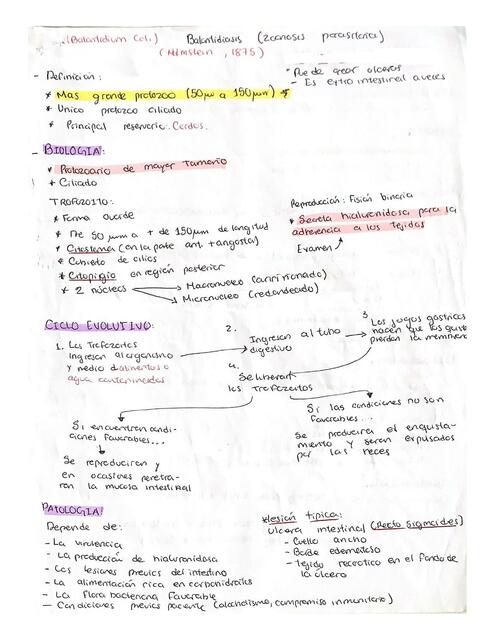 (Balantidium Coli.) Balantidiasis (zoonosis parasitaria)
(Malmstein, 1875)
- Definición:
* Mas grande protozoo (50µm a 150µm) *
* Unico protozoo ciliado
* Principal reservorio: Cerdos.
* Puede crear ulceras
- Es extraintestinal a veces
- BIOLOGIA:
* Protozoario de mayor tamaño
* Ciliado
TROFOZOITO:
* Forma ovoide
* De 50 µm a + de 150µm de longitud
* Citostoma (en la parte ant. + angosta)
* Cubierto de cilios
* Citopigio en región posterior
* 2 núcleos
Macronucleo (arriñonado)
Micronucleo (redondeado)
Reproducción: Fisión binaria
* Secreta hialuronidasa para la
adherencia a los tejidos
Examen
CICLO EVOLUTIVO:
1. Los Trofozoitos
ingresan al organismo
y medio d alimentos o
agua contaminados
2.
Ingresan al tubo
digestivo
3
Los jugos gastricos
hacen que los quiste
pierdan la membrana
4.
Se liberan
los trofozoitos
Si encuentran condi-
ciones favorables...
Se reproduciran y
en ocasiones penetra-
ran la mucosa intestinal
Si las condiciones no son
favorables...
Se producira el enquista-
miento y seran expulsados
por las heces
PATOLOGIA:
Depende de:
- La virulencia
- La producción de hialuronidasa
- Las lesiones previas del intestino
- La alimentación rica en carbohidratos
- La flora bacteriana favorable
- Condiciones previas paciente (alcoholismo, compromiso inmunitario)
*lesión típica:
Ulcera intestinal (Recto Sigmoides)
- Cuello ancho
- Borde edematoso
- tejido necrotico en el fondo de
la ulcera